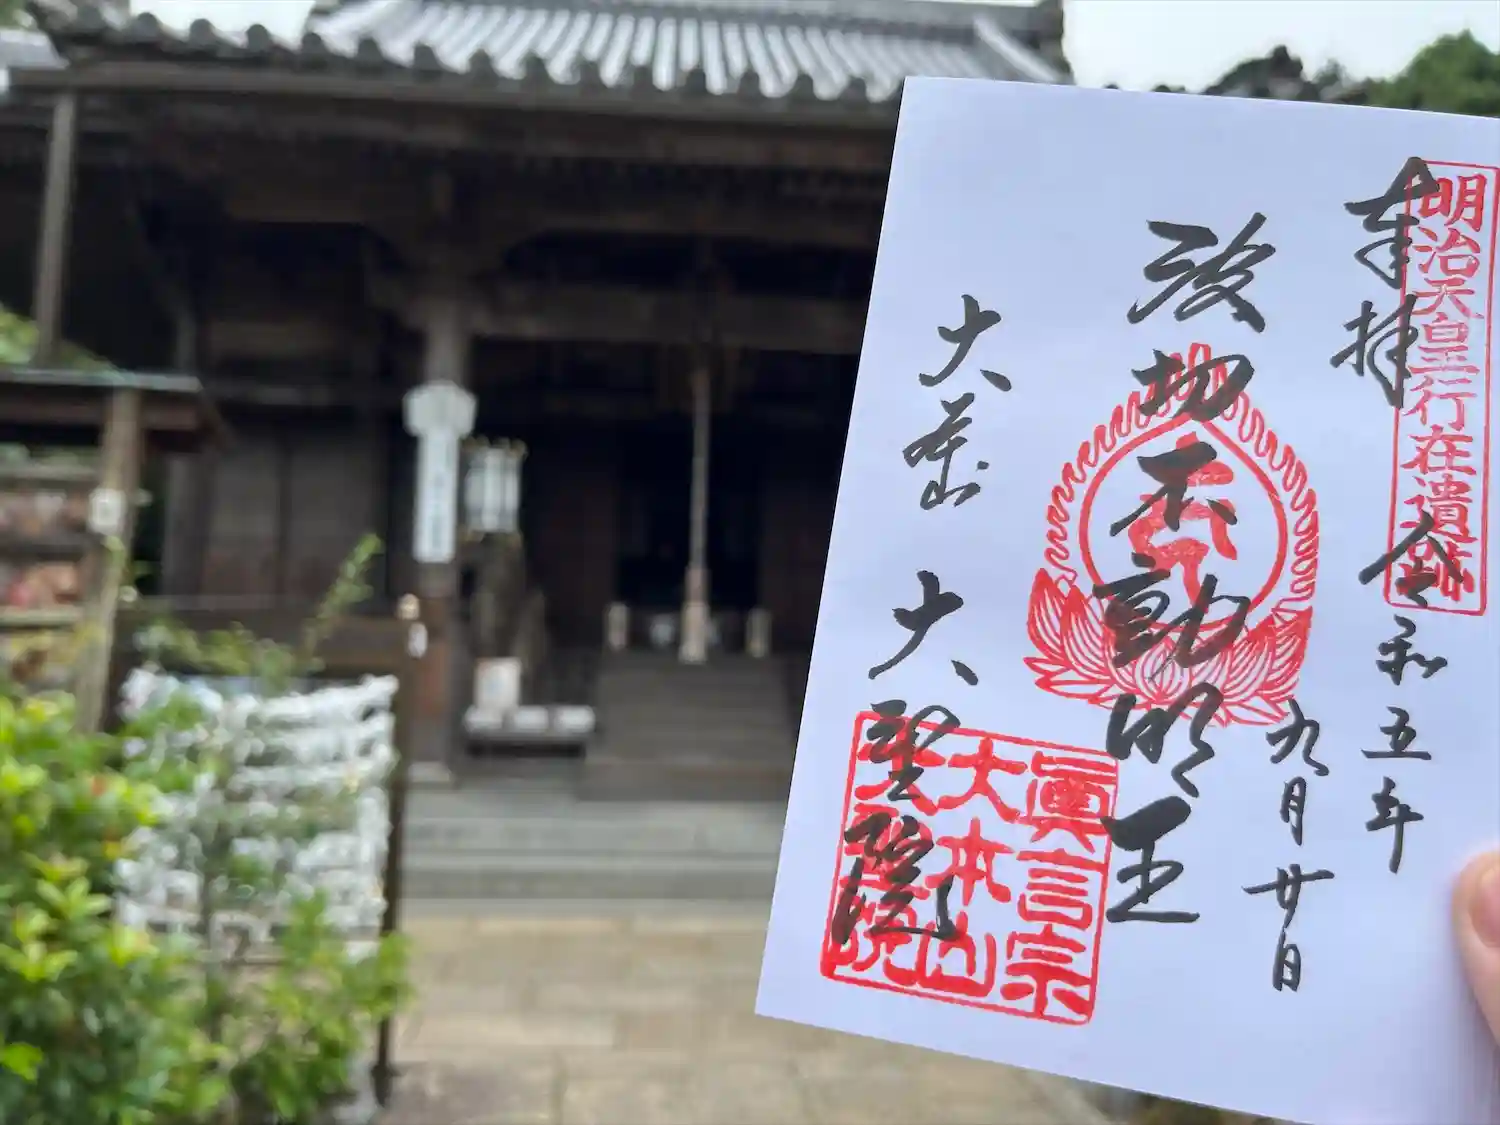 明治天皇行在遺蹟
奉拝 令和五年
九月廿日
波切不動明王
大本山 大聖院
眞言宗
大本山
大聖院